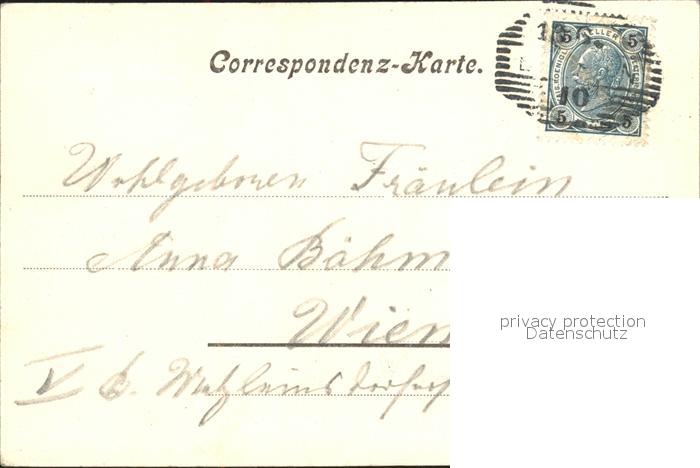 Correspondenz-Karte.
5 HELLER 5
10
5 5
Wohlgeboren Fräulein
Anna Böhm
Wien
V b. Matzleinsdorfer
privacy protection
Datenschutz